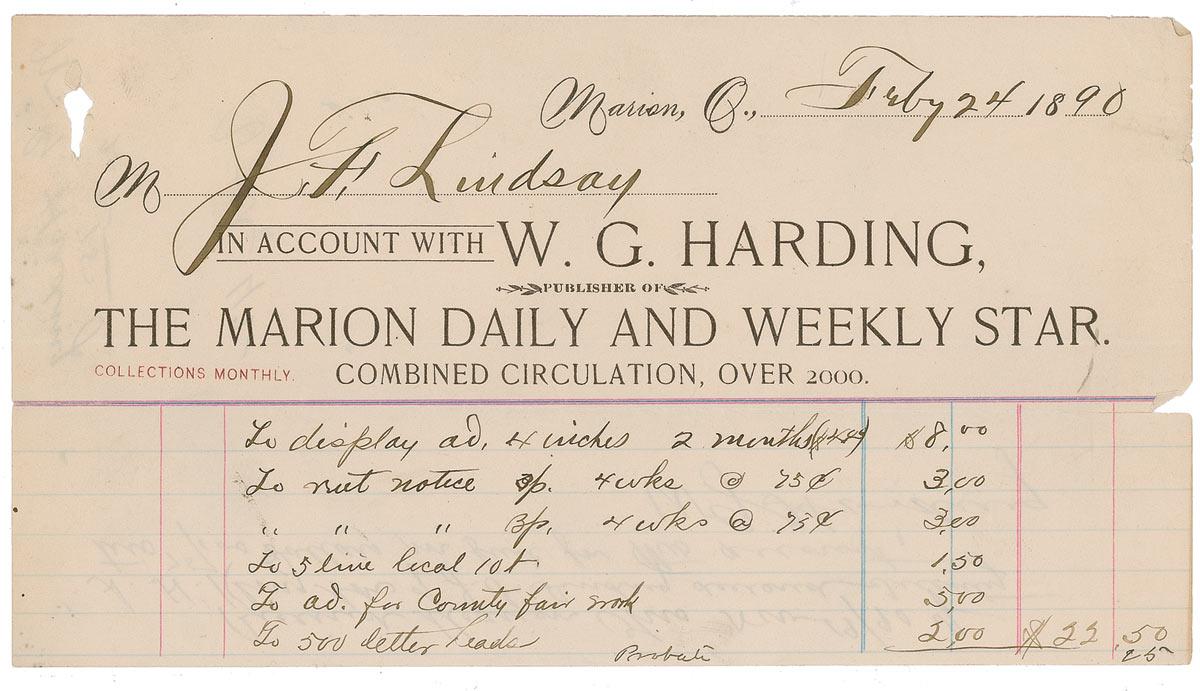 Marion, O., Feby 24 1890
M J. F. Lindsay
IN ACCOUNT WITH W. G. HARDING,
PUBLISHER OF
THE MARION DAILY AND WEEKLY STAR.
COLLECTIONS MONTHLY. COMBINED CIRCULATION, OVER 2000.
To display ad. 4 inches 2 months $8.00
To notice 3p. 4 wks @ 75¢ 3.00
" " " 3p. 4 wks @ 75¢ 3.00
To 5 line local 10t. 1.50
To ad. for County fair work 5.00
To 500 letter heads 2.00 $22.50
Probate 25